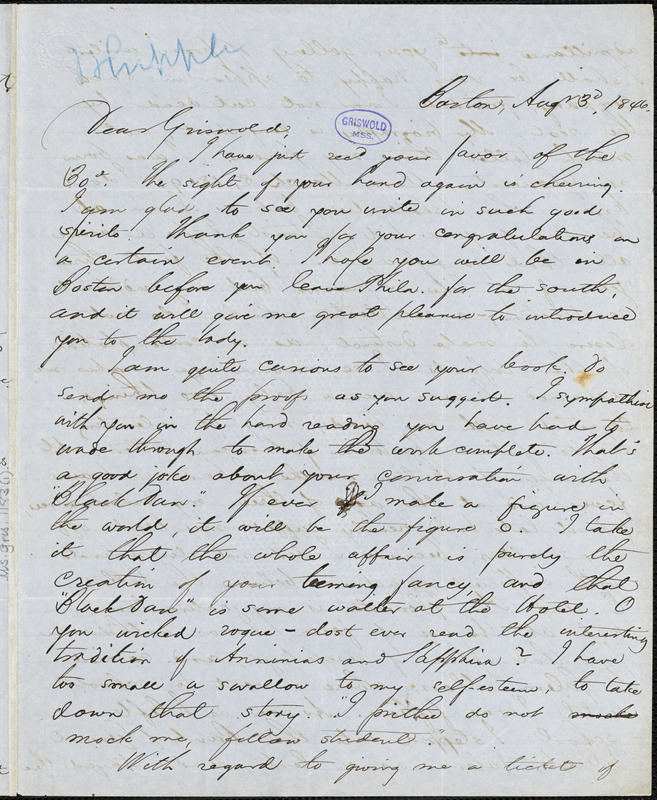 Whipple
Boston, Augt 3d, 1846.
Dear Griswold,
GRISWOLD
MSS.
I have just read your favor of the
30th. The sight of your hand again is cheering.
I am glad to see you write in such good
spirits. Thank you for your congratulations on
a certain event. I hope you will be in
Boston before you leave Phila. for the south,
and it will give me great pleasure to introduce
you to the lady.
I am quite curious to see your book. Do
send me the proofs as you suggest. I sympathise
with you in the hard reading you have had to
wade through to make the work complete. That's
a good joke about your conversation with
"Black Dan." If ever I make a figure in
the world, it will be the figure 0. I take
it that the whole affair is purely the
creation of your teeming fancy, and that
"Black Dan" is some waiter at the Hotel. O
you wicked rogue - dost ever read the interesting
tradition of Annanias and Sapphira? I have
too small a swallow to my self-esteem, to take
down that story. "I prithee do not mock
mock me, fellow student."
With regard to giving me a ticket of